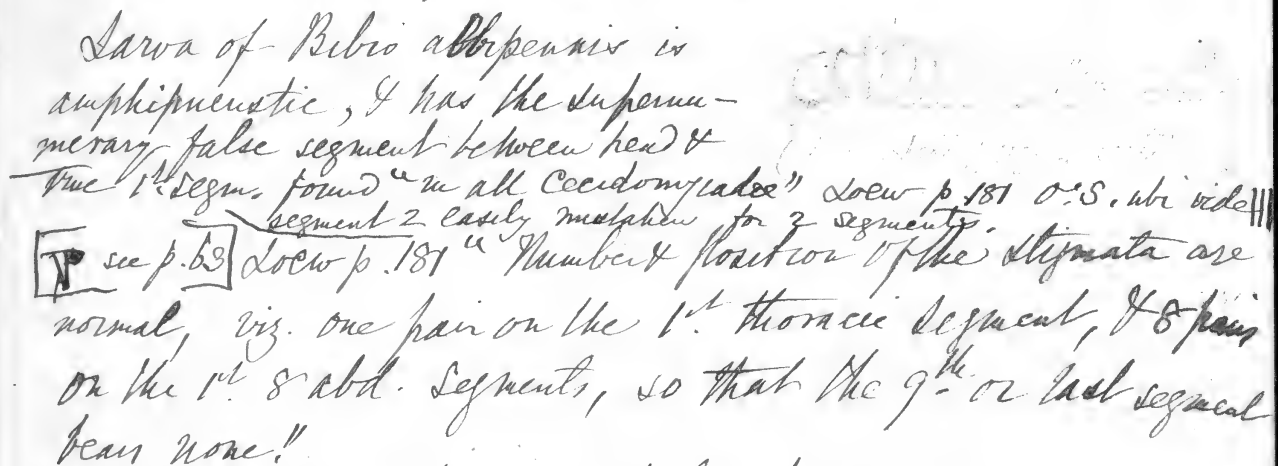 Larva of Bibio albipennis is
amphipneustic, & has the supernu-
merary false segment between head &
true 1st segm. found "in all Cecidomyiadae" Loew p.181 O.S. ubi vide
segment 2 easily mistaken for 2 segments.
see p.63 Loew p.181 "Number & position of the stigmata are
normal, viz. one pair on the 1st thoracic segment, & 8 pairs
on the 1st 8 abd. segments, so that the 9th or last segment
bears none."